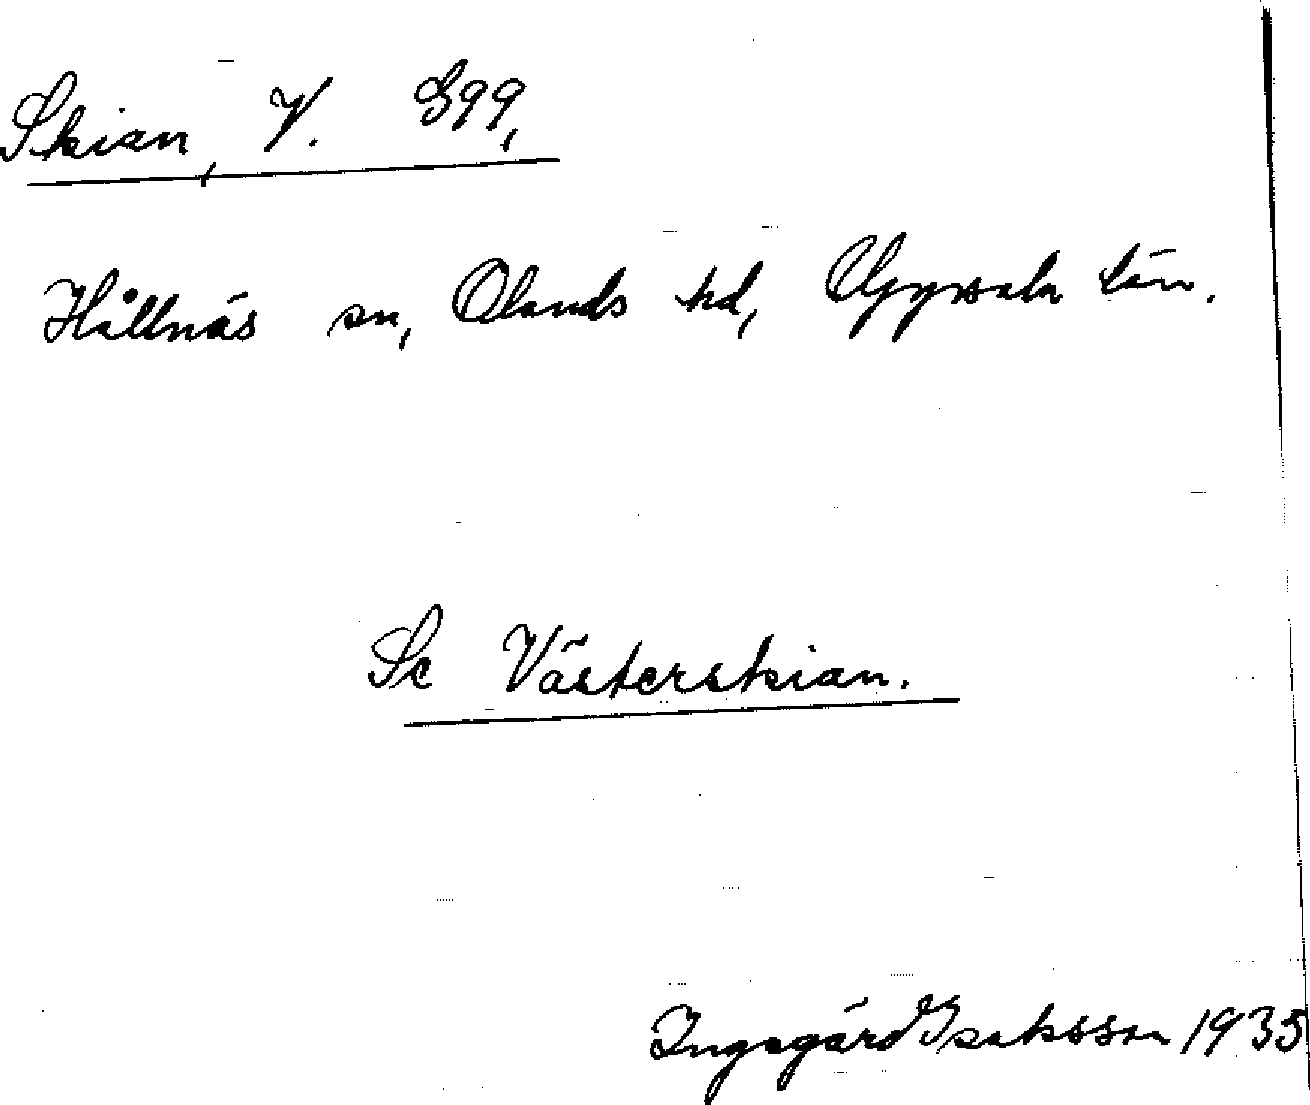 Skian, V.
Hållnäs sn, Olands hd, Uppsala län.
Se Västerskian.
Ingegärd Isaksson 1935